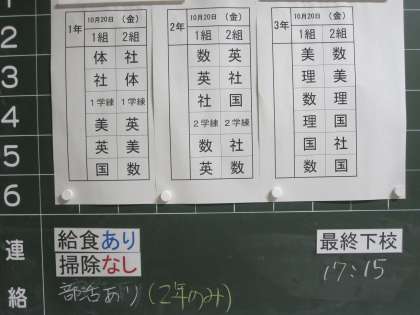 1年 10月20日 (金)
1組 2組
体 社
社 体
1学練 1学練
美 英
英 美
国 数
2年 10月20日 (金)
1組 2組
数 英
英 社
社 国
2学練 2学練
数 社
英 数
3年 10月20日 (金)
1組 2組
美 数
理 美
数 理
理 国
国 社
社 数
国 数
2
3
4
5
6
連絡
給食あり
掃除なし
部活あり(2年のみ)
最終下校
17:15